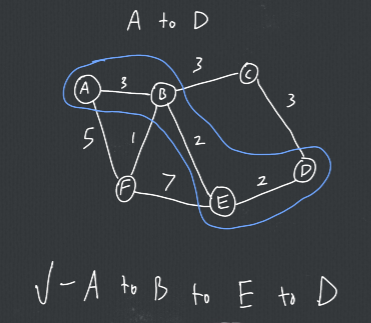 A to D
3
A 3 B C
3
5 1 2
D
F 7 E 2
√ - A to B to E to D